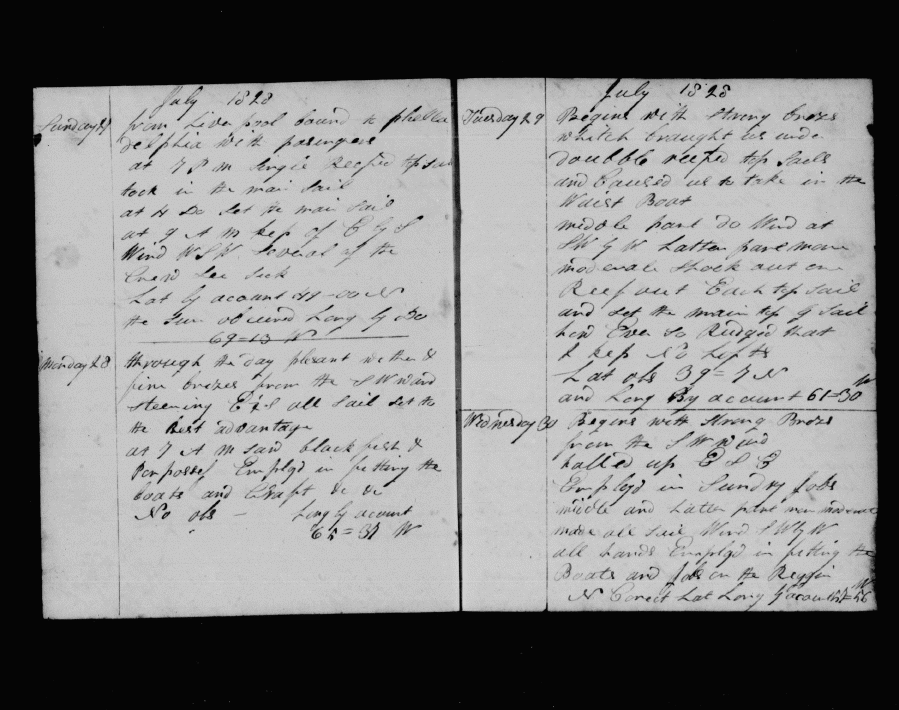 July 1828
Sunday 27 from Liverpool bound to phella
delphia with pasengers
at 7 P m Single Reefed top sai
took in the main sail
at 4 Do Set the main sail
at 9 A m kep of E by S
Wind WSW Several of the
Crew Sea Sick
Lat by acount 39-00 N
the Sun obscured Long by Do
69=13 W
Monday 28 through the day plesant wether &
fine brezes from the SW ward
steering E&S all Sail Set to
the Best advantage
at 7 A M saw black fish &
Porposes Employd in fitting the
boats and Craft &c &c
No obs - Long by acount
65=37 W
July 1828
Tuesday 29 Begins with Strong brezes
which braught us unde
doubble reefed top Sails
and Caused us to take in the
Waist Boat
middle part do Wind at
SW by W Latter part more
moderate Shook out one
Reef out Each top sail
and Set the main top G Sail
how Ever so Rudged that
I kep No
Lat obs 39=7 N
and Long By account 61=30 W
Wednesday 30 Begins with Strong Brezes
from the SW wind
halled up E S E
Employd in Sundry Jobs
middle and Latter part more moderate
made all sail Wind SW by W
all hands Employd in fitting the
Boats and Jobs on the Reggin
N Corect Lat Long by acount 57=56 W